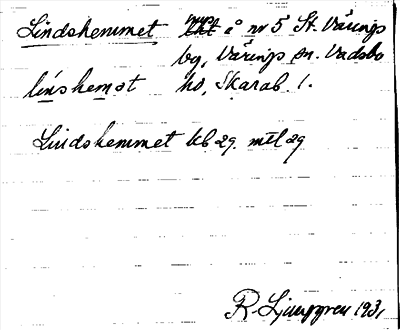 Lindshemmet å nr 5 St. Värings
by, Värings sn. Vadsbo
linshemat hd, Skarab. l.
Lindshemmet kb 29. mtl 29
R Ljunggren 1931